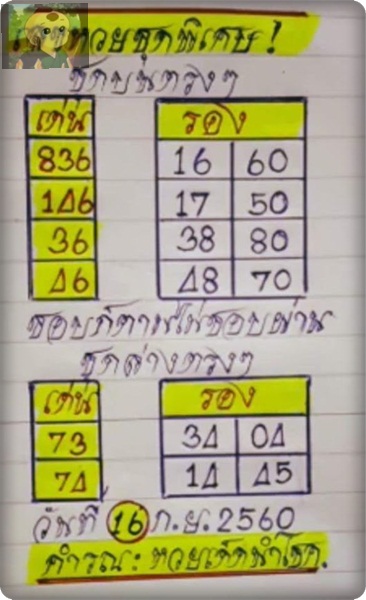 หวยชุดพิเศษ!
ชุดบนตรงๆ
เด่น รอง
836 16 60
146 17 50
36 38 80
46 48 70
ชอบก็ตามไม่ชอบผ่าน
ชุดล่างตรงๆ
เด่น รอง
73 34 04
74 14 45
วันที่ 16 ก.ย. 2560
หวยเด็ดนำโชค.